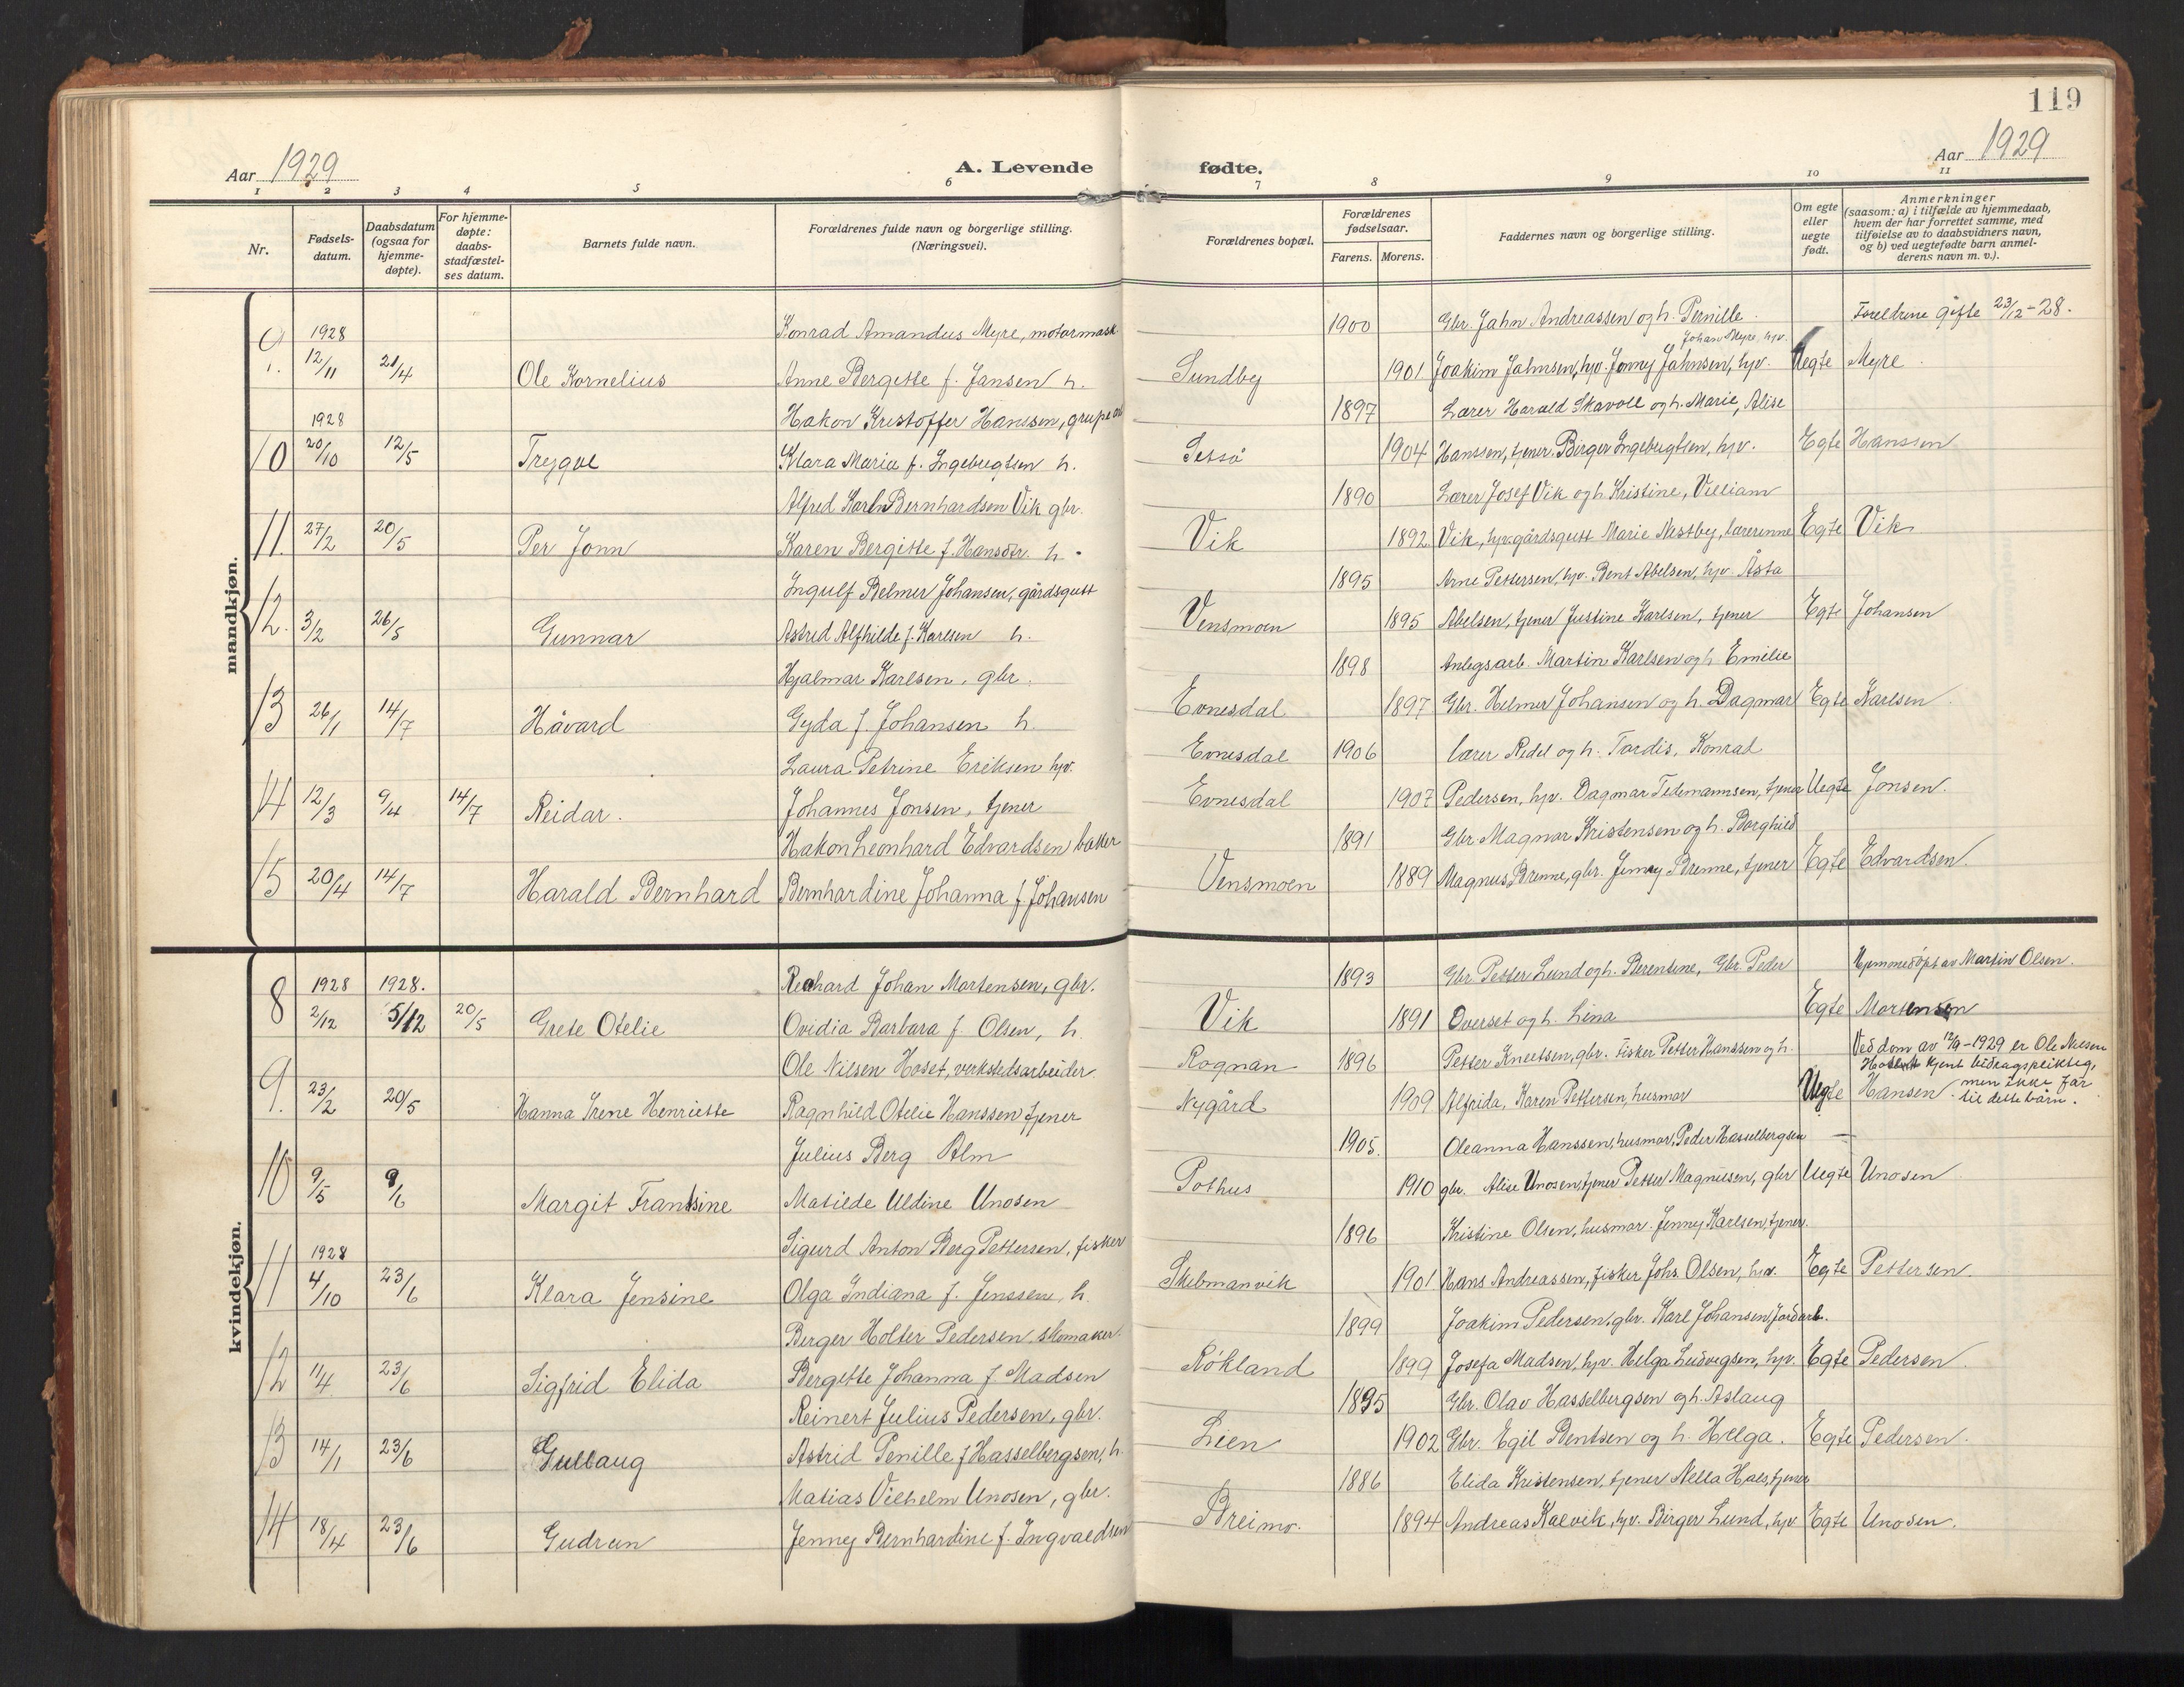 119
Aar 1929
A. Levende fødte.
Aar 1929
1 2 3 4 5 6 7 8 9 10 11
Nr.
Fødsels-
datum.
Daabsdatum
(ogsaa for
hjemme-
døpte).
For hjemme-
døpte:
daabs-
stadfæstel-
ses datum.
Barnets fulde navn.
Forældrenes fulde navn og borgerlige stilling.
(Næringsvei).
Forældrenes bopæl.
Forældrenes
fødselsaar.
Farens. Morens.
Faddernes navn og borgerlige stilling.
Om egte
eller
uegte
født.
Anmerkninger
(saasom: a) i tilfælde av hjemmedaab,
hvem der har forrettet samme, med
tilføielse av to daabsvidners navn,
og b) ved uegtefødte barn anmel-
derens navn m. v.).
mandkjøn.
9 1928 Konrad Amandus Myre, motormask 1900 Gbr. Jahn Andreassen og h. Pernille. Foreldrene gifte 23/12-28.
Johan Myre, hjv.
12/11 21/4 Ole Kornelius Anne Bergitte f. Jansen h. Sundby 1901 Joakim Jahnsen, hjv. Jonny Jahnsen, hjv. Uegte Myre.
1928 Hakon Kristoffer Hanssen, 1897 Lærer Harald Skavoll og h. Marie, Alise
10 20/10 12/5 Trygve Klara Marie f. Ingebrigtsen h. Setså 1904 Hanssen, tjener. Birger Ingebrigtsen, hjv. Egte Hanssen
Alfred Karl Bernhardsen Vik gbr. 1890 Lærer Josef Vik og h. Kristine, Villiam
11. 27/2 20/5 Per Jonn Karen Bergitte f. Hansdtr. h. Vik 1892 Vik, hjv. gårdsgutt Marie Nestby, lærerinne Egte Vik
Ingulf Belmer Johansen, gårdsgutt 1895 Arne Pettersen, hjv. Bent Abelsen, hjv. Åsta
12. 3/2 26/5 Gunnar Astrid Alfhilde f. Karlsen h. Vensmoen 1895 Abelsen, tjener Justine Karlsen, tjener Egte Johansen
Hjalmar Karlsen, gbr. 1898 Anlegsarb. Martin Karlsen og h. Emilie
13 26/1 14/7 Håvard Gyda f. Johansen h. Evnesdal 1897 Gbr. Helmer Johansen og h. Dagmar Egte Karlsen.
Laura Petrine Eriksen hjv. Evnesdal 1906 lærer Redel og h. Tordis, Konrad
14 12/3 9/4 14/7 Reidar. Johannes Jonsen, tjener Evnesdal 1907 Pedersen, hjv. Dagmar Tidemannsen, tjener Uegte Jonsen.
Hakon Leonhard Edvardsen baker 1891 Gbr. Magnar Kristensen og h. Borghild
15 20/4 14/7 Harald Bernhard Bernhardine Johanna f. Johansen Vensmoen 1889 Magnus Brenne, gbr. Jenny Brenne, tjener Egte Edvardsen.
kvindekjøn.
1928 1928. Richard Johan Mortensen, gbr. 1893 Gbr. Petter Lund og h. Berentine, Gbr. Peder Hjemmedöpt av Martin Olsen.
8 2/12 5/12 20/5 Grete Otelie Ovidia Barbara f. Olsen, h. Vik 1891 Overset og h. Lina Egte Mortensen
Ole Nilsen Hoset, verkstedsarbeider Rognan 1896 Petter Knutsen, gbr. fisker Petter Hanssen og h. Ved dom av 12/9-1929 er Ole Nilsen
kjent bidragspliktig,
9. 23/2 20/5 Hanna Irene Henriette Ragnhild Otelie Hanssen tjener Nygård 1909 Alfrida, Karen Pettersen, husmor Uegte Hansen. men ikke far
til dette barn.
Julius Berg Alm 1905. Oleanna Hanssen, husmor, Peder Hasselbergsen —
10 9/5 9/6 Margit Frantsine Matilde Uldine Unosen Pothus 1910 gbr. Alise Unosen, tjener Petter Magnussen, gbr Uegte Unosen
1928 Sigurd Anton Berg Pettersen, fisker 1896 Kristine Olsen, husmor. Jenny Karlsen, tjener.
11 4/10 23/6 Klara Jensine Olga Indiana f. Jenssen, h. Skibmanvik 1901 Hans Andreassen, fisker Johs. Olsen, hjv. Egte Pettersen.
Berger Holter Pedersen. skomaker. 1899 Joakim Pedersen, gbr. Karl Johansen, jordarb.
12 11/4 23/6 Sigfrid Elida Bergitte Johanna f. Madsen Røkland 1899 Josefa Madsen, hjv. Helga Ludvigsen, hjv. Egte Pedersen.
Reinert Julius Pedersen, gbr. 1895 Gbr. Olav Hasselbergsen og h. Aslaug
13 14/1 23/6 Gullaug Astrid Penille f. Hasselbergsen, h. Lien 1902 Gbr. Egil Bentsen og h. Helga. Egte Pedersen.
Matias Vilhelm Unosen, gbr. 1886 Elida Kristensen, tjener Nella Hals, tjener
14 18/4 23/6 Gudrun Jenney Bernhardine f. Ingvaldsen Breimo. 1894 Andreas Kalvik, hjv. Birger Lund, hjv Egte Unosen.